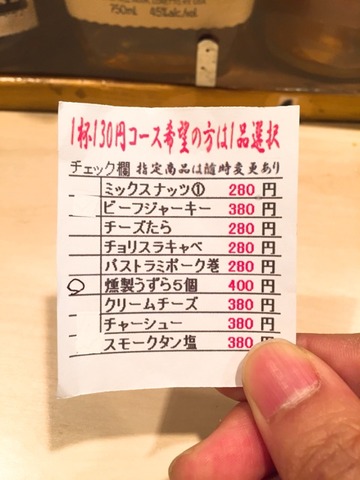 750ml 45%alc/vol
1杯130円コース希望の方は1品選択
チェック欄 指定商品は随時変更あり
ミックスナッツ① 280 円
ビーフジャーキー 380 円
チーズたら 280 円
チョリスラキャベ 280 円
パストラミポーク巻 280 円
○ 燻製うずら5個 400 円
クリームチーズ 380 円
チャーシュー 380 円
スモークタン塩 380 円